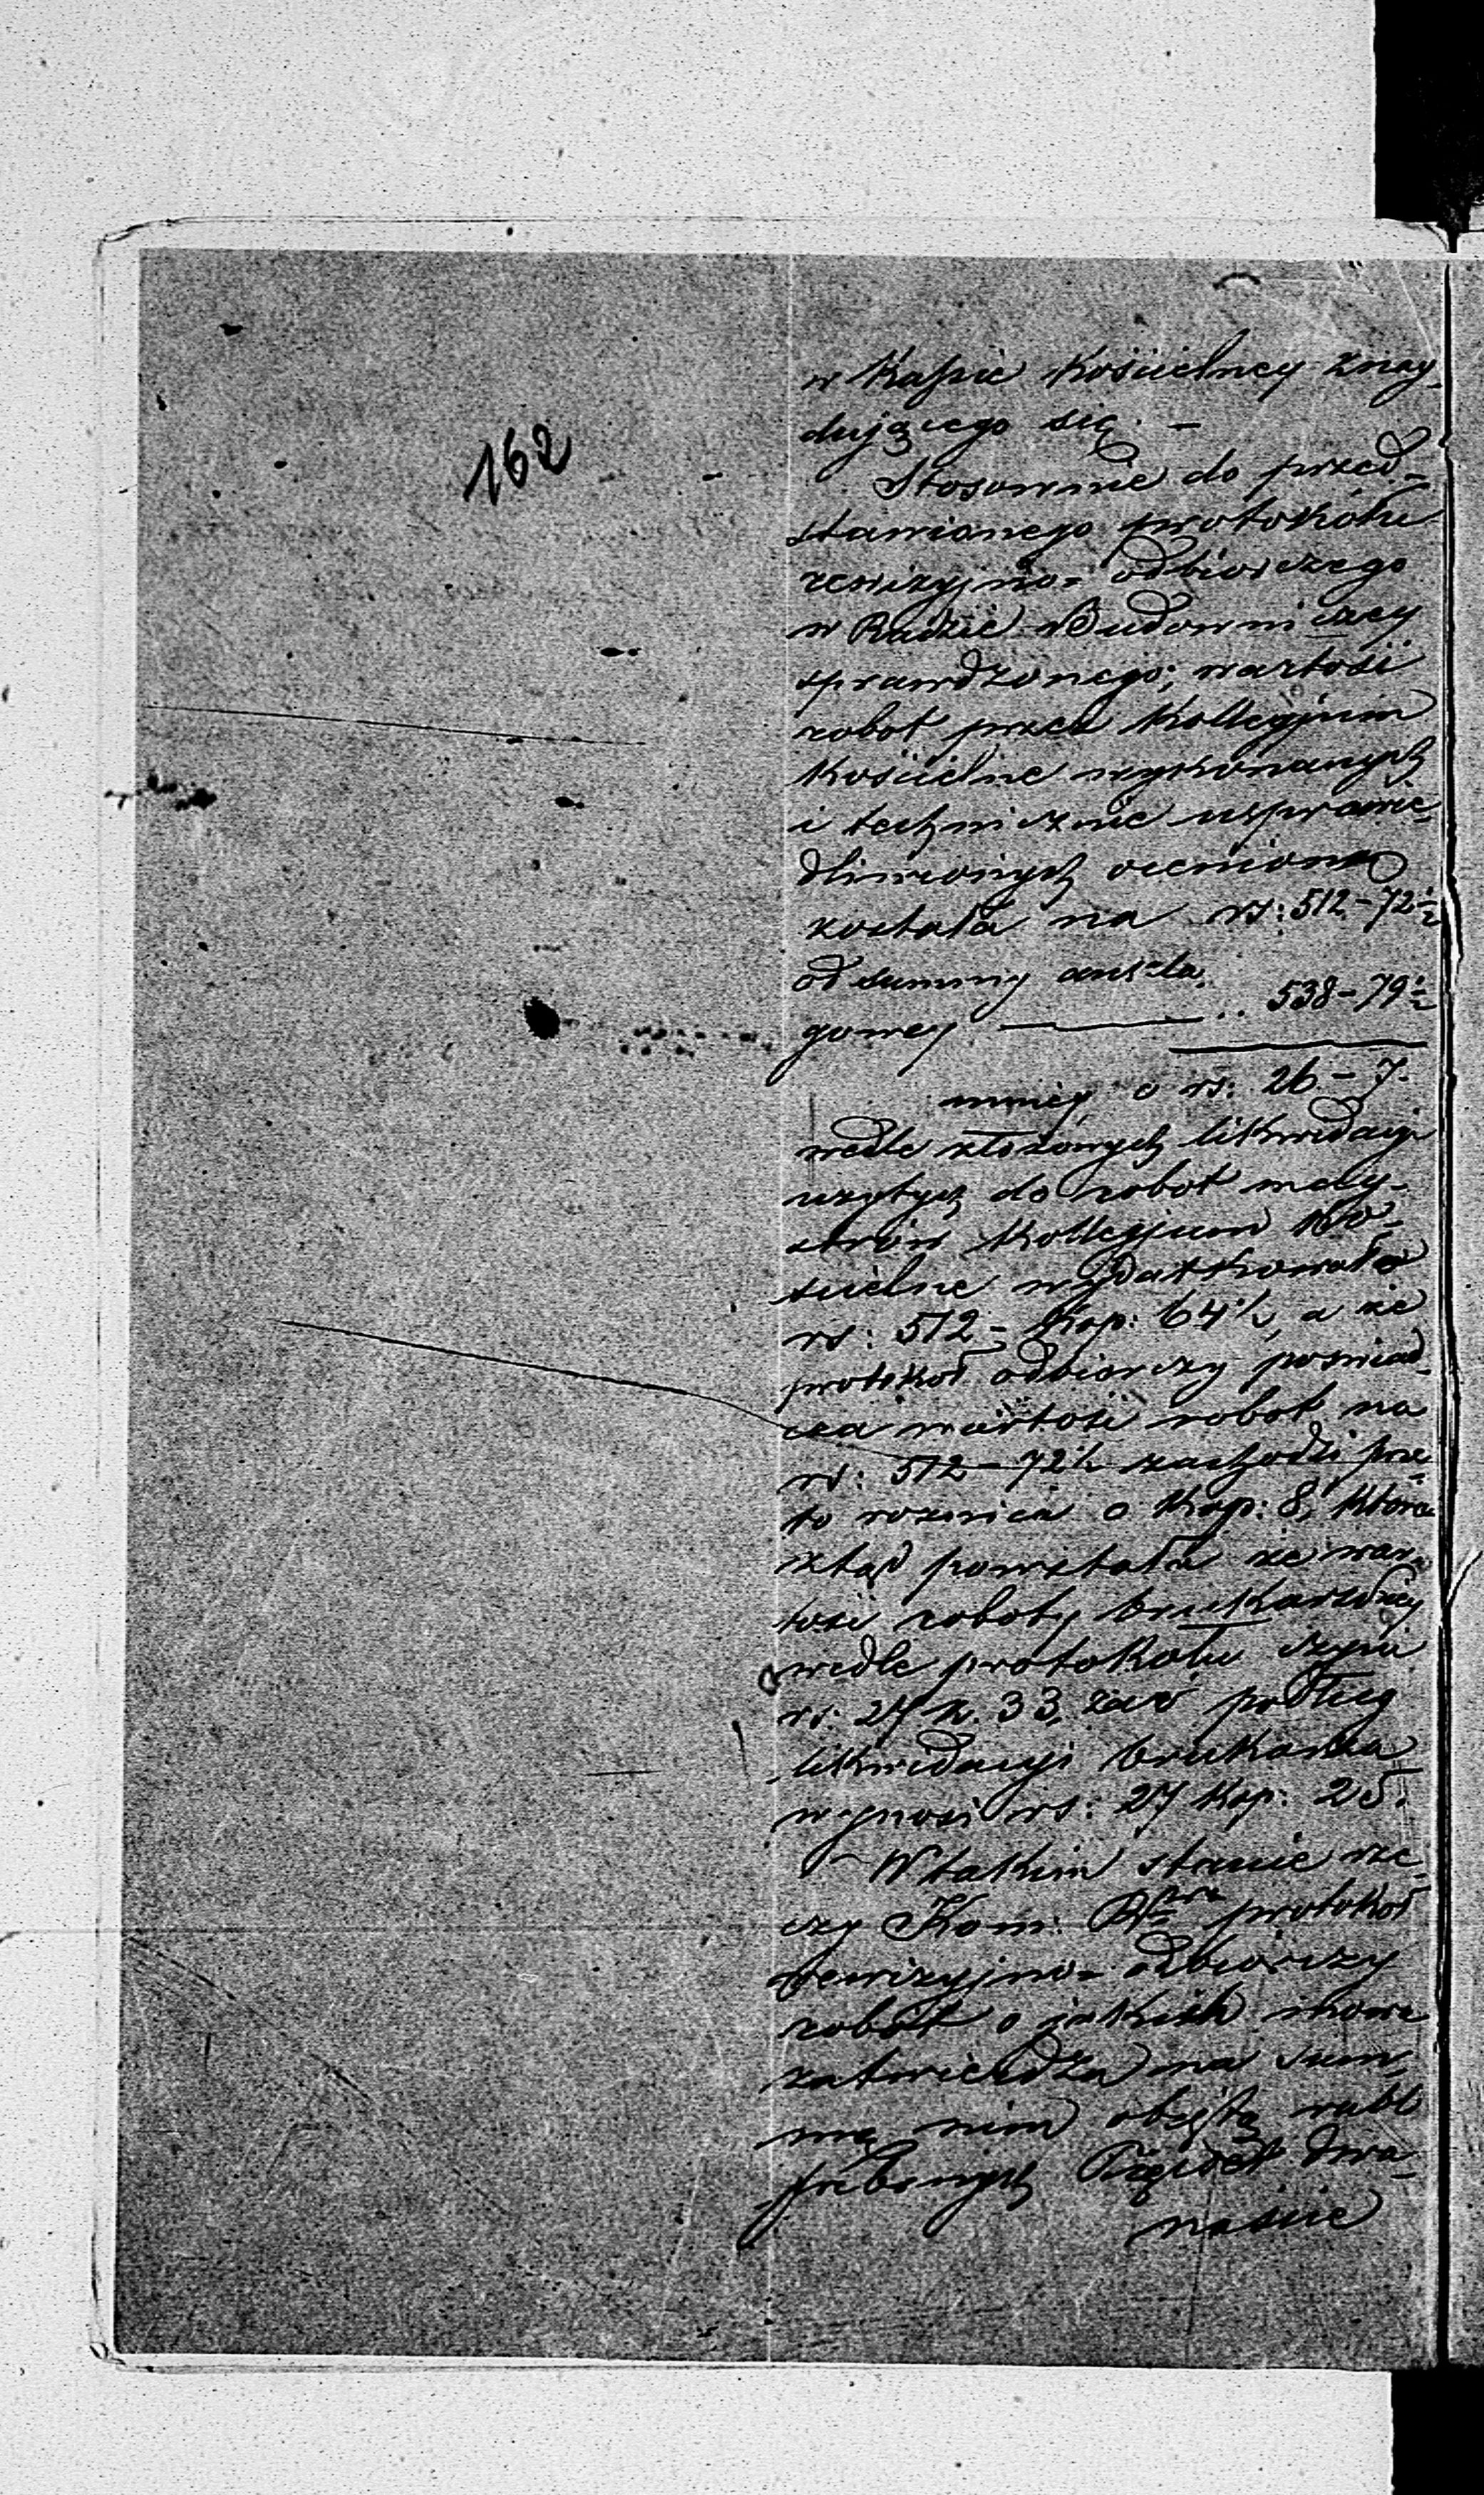 162
w Kassie Kościelney znay-
dującego się. —
Stosownie do przed-
stawionego protokółu
rewizyjno= odbiorczego
w Radzie Budowniczey
sprawdzonego, wartość
robot przez Kollegjum
Kościelne wykonanych
i technicznie usprawie-
dliwionych oceniona
została na rs: 512-72½
od summy anszla-
gowey — .. 538-79½
mniéy o rs: 26-7.
wedle złożonych likwidacyi
użytych do robot may-
strów Kollegjum Ko-
ścielne wydatkowało
rs: 512- Kop: 64½, a że
protokoł odbiorczy poswiad-
cza wartość robot na
rs: 512-72½ zachodzi prze-
to roznica o Kop: 8, która
ztąd powstała że war-
tość roboty brukarskiey
wedle protokołu czyni
rs. 27 k. 33, zaś podług
likwidacyi brukarza
wynosi rs: 27 Kop: 25.
W takim stanie rze-
czy Kom: protokoł
rewizyjno= odbiorczy
robot o jakich mowa
zatwierdza na sum-
mę nim objętą rubli
srebrnych Pięćset dwa-
naście